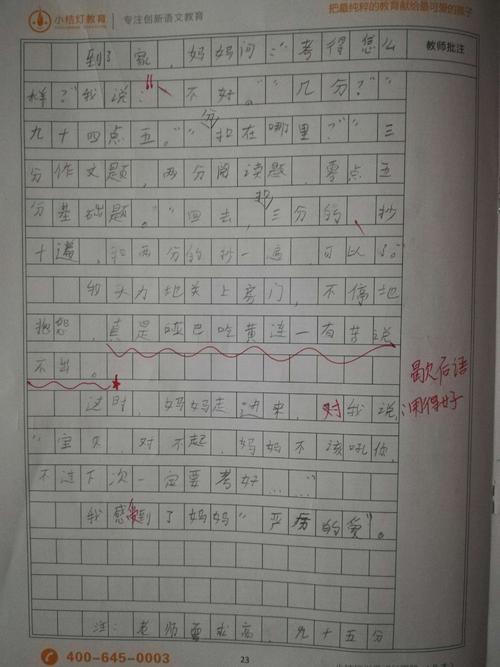 小桔灯教育 专注创新语文教育 把最纯粹的教育献给最可爱的孩子
教师批注
到了家，妈妈问：“考得怎么
样？”我说：“不好。”“几分？”“
九十四点五。”“扣分在哪里？”“三
分作文题，两分阅读题，零点五
分基础题。”“回去，扣三分的、抄
十遍，扣两分的抄一遍 可以了。”
我大力地关上房门，不停地
抱怨，真是哑巴吃黄连—有苦说
不出。
歇后语
用得好
这时 妈妈走进来，对我说：
“宝贝，对不起，妈妈不该吼你，
不过下次一定要考好……”
我感受到了妈妈“严厉的爱”。
注：老师要求高，九十五分
400-645-0003
23